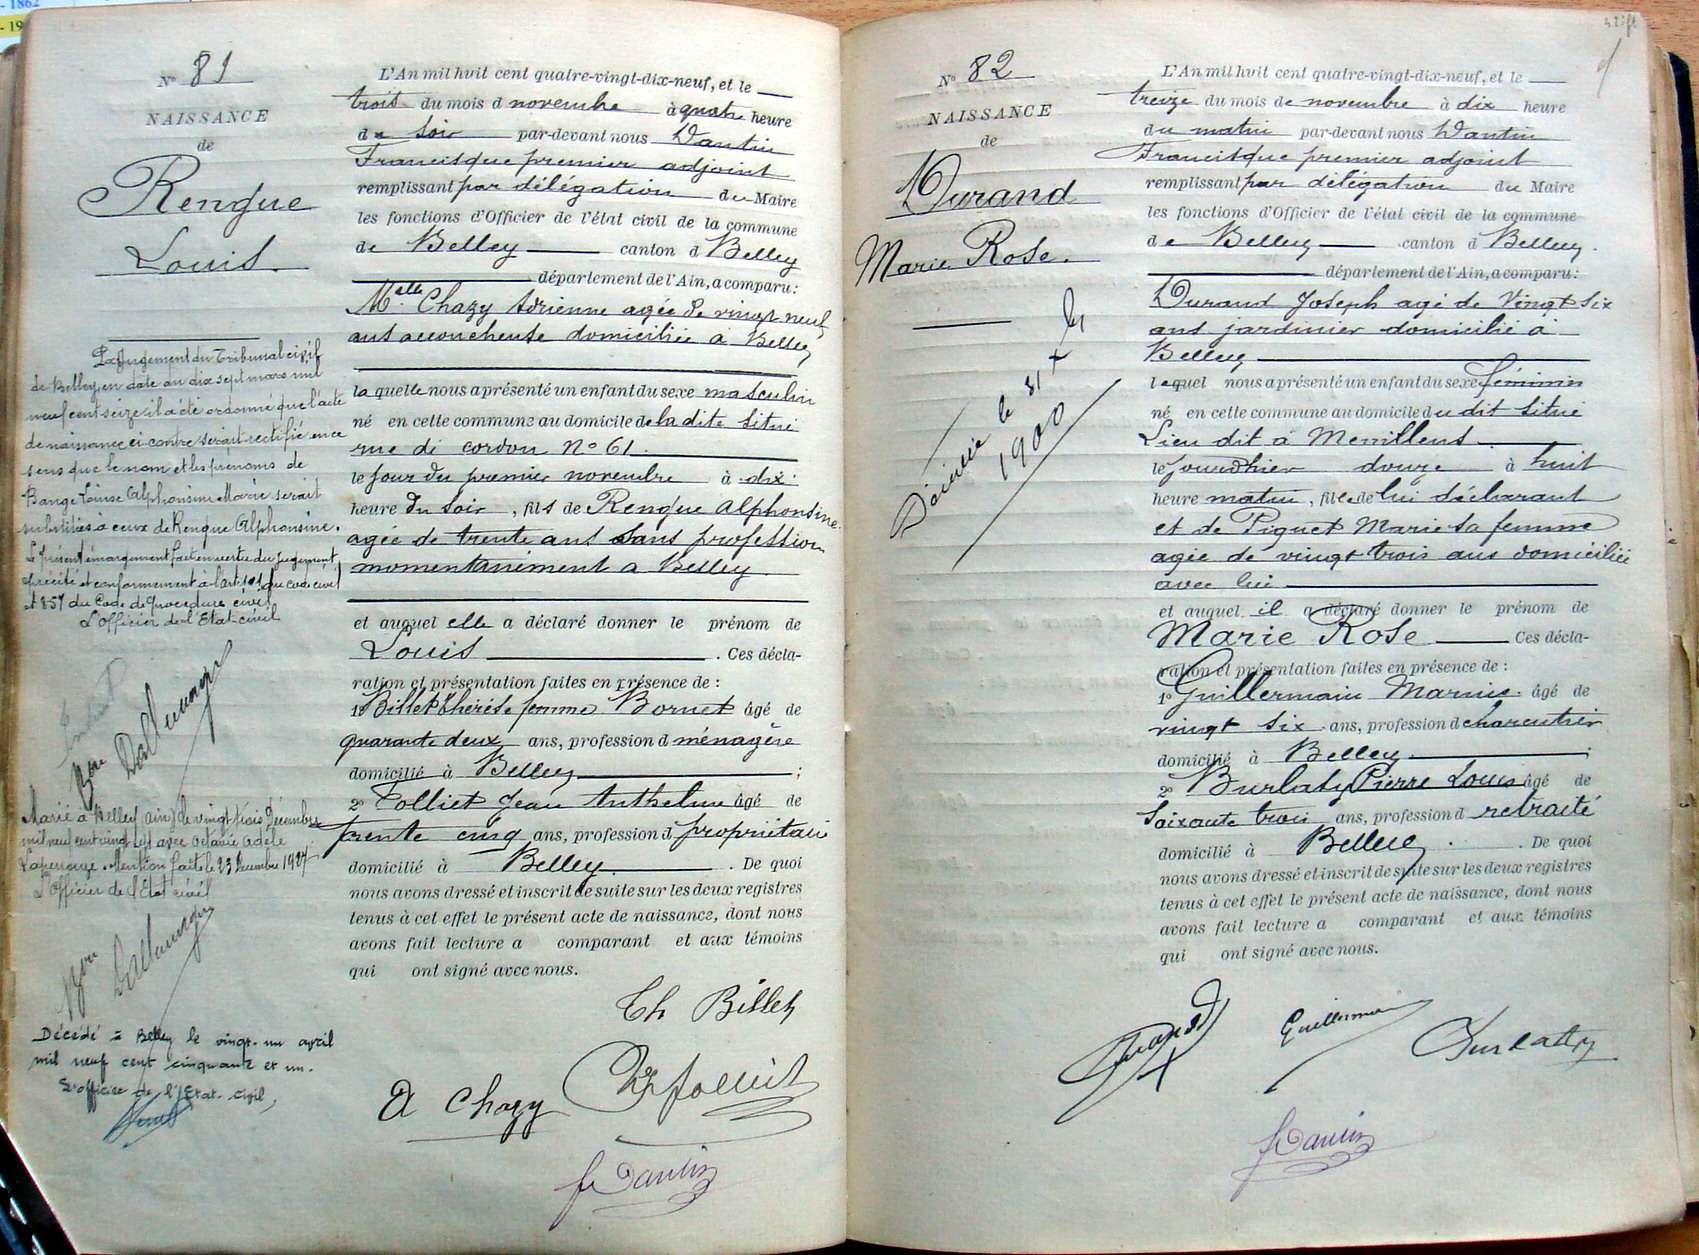 - 1862
- 19
N° 81
NAISSANCE
de
Rengue
Louis.
Par Jugement du Tribunal civil
de Belley, en date du dix sept mars mil
neuf cent seize il a été ordonné que l'acte
de naissance ci-contre serait rectifié en ce
sens que le nom et les prénoms de
Bange Louise Alphonsine Marie serait
substitués à ceux de Rengue Alphonsine.
Le présent émargement fait en vertu du jugement
précité et conformément à l'art 101 du code civil
et 857 du Code de Procédure civil
L'officier de l'Etat-civil
Marié à Belley (Ain) le vingt trois Décembre
mil neuf cent vingt sept avec Octavie Adèle
Mention faite le 23 Décembre 1927
L'Officier de l'Etat civil
Décédé à Belley le vingt-un avril
mil neuf cent cinquante et un.
L'officier de l'Etat-Civil,
L'An mil huit cent quatre-vingt-dix-neuf, et le
trois du mois d novembre à quatre heure
du soir par-devant nous Dantin
Francisque premier adjoint
remplissant par délégation du Maire
les fonctions d'Officier de l'état civil de la commune
de Belley canton d Belley
département de l'Ain, a comparu:
Melle Chazy Adrienne agée de vingt neuf
ans accoucheuse domiciliée a Belley
laquelle nous a présenté un enfant du sexe masculin
né en cette commune au domicile de la dite situé
rue de cordon N° 61.
le jour du premier novembre à dix
heure du soir, fils de Rengue Alphonsine
agée de trente ans sans profession
momentanément a Belley
et auquel elle a déclaré donner le prénom de
Louis. Ces décla-
ration et présentation faites en présence de :
1° Billet Thérèse femme Bornet âgé de
quarante deux ans, profession d ménagère
domicilié à Belley ;
2° Folliet Jean Anthelme âgé de
trente cinq ans, profession d propriétaire
domicilié à Belley. De quoi
nous avons dressé et inscrit de suite sur les deux registres
tenus à cet effet le présent acte de naissance, dont nous
avons fait lecture a comparant et aux témoins
qui ont signé avec nous.
Th Billet
A Chazy
Folliet
F Dantin
N° 82
NAISSANCE
de
Durand
Marie Rose.
Décédée le 31
1900
L'An mil huit cent quatre-vingt-dix-neuf, et le
treize du mois de novembre à dix heure
du matin par-devant nous Dantin
Francisque premier adjoint
remplissant par délégation du Maire
les fonctions d'Officier de l'état civil de la commune
de Belley canton d Belley.
département de l'Ain, a comparu:
Durand Joseph agé de vingt six
ans jardinier domicilié à
Belley
lequel nous a présenté un enfant du sexe féminin
né en cette commune au domicile du dit situé
Lieu dit à
le jourdhier douze à huit
heure matin, fille de lui déclarant
et de Piquet Marie sa femme
agée de vingt trois ans domiciliée
avec lui
et auquel il a déclaré donner le prénom de
Marie Rose Ces décla-
ration et présentation faites en présence de :
1° Guillermain Marius âgé de
vingt six ans, profession d charcutier
domicilié à Belley ;
2° Burlaty Pierre Louis âgé de
soixante trois ans, profession d retraité
domicilié à Belley. De quoi
nous avons dressé et inscrit de suite sur les deux registres
tenus à cet effet le présent acte de naissance, dont nous
avons fait lecture a comparant et aux témoins
qui ont signé avec nous.
Durand
Guillermain
Burlaty
F Dantin